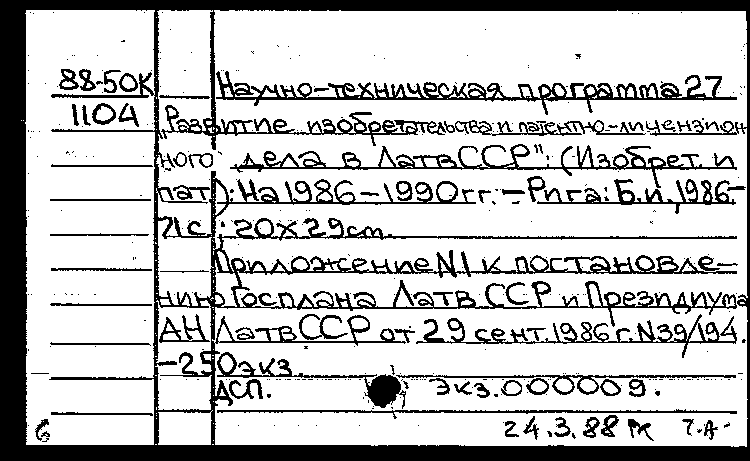 88-50К Научно-техническая программа 27
1104 „Развитие изобретательства и патентно-лицензион
ного дела в ЛатвССР": (Изобрет. и
пат.): На 1986-1990гг. - Рига: Б.и., 1986.-
71с.; 20х29cm.
Приложение N1 к постановле-
нию Госплана Латв ССР и Президиума
АН ЛатвССР от 29 сент. 1986 г. N39/194.
-250экз.
ДСП. экз.000009.
6 24.3.88 РК Т.А-